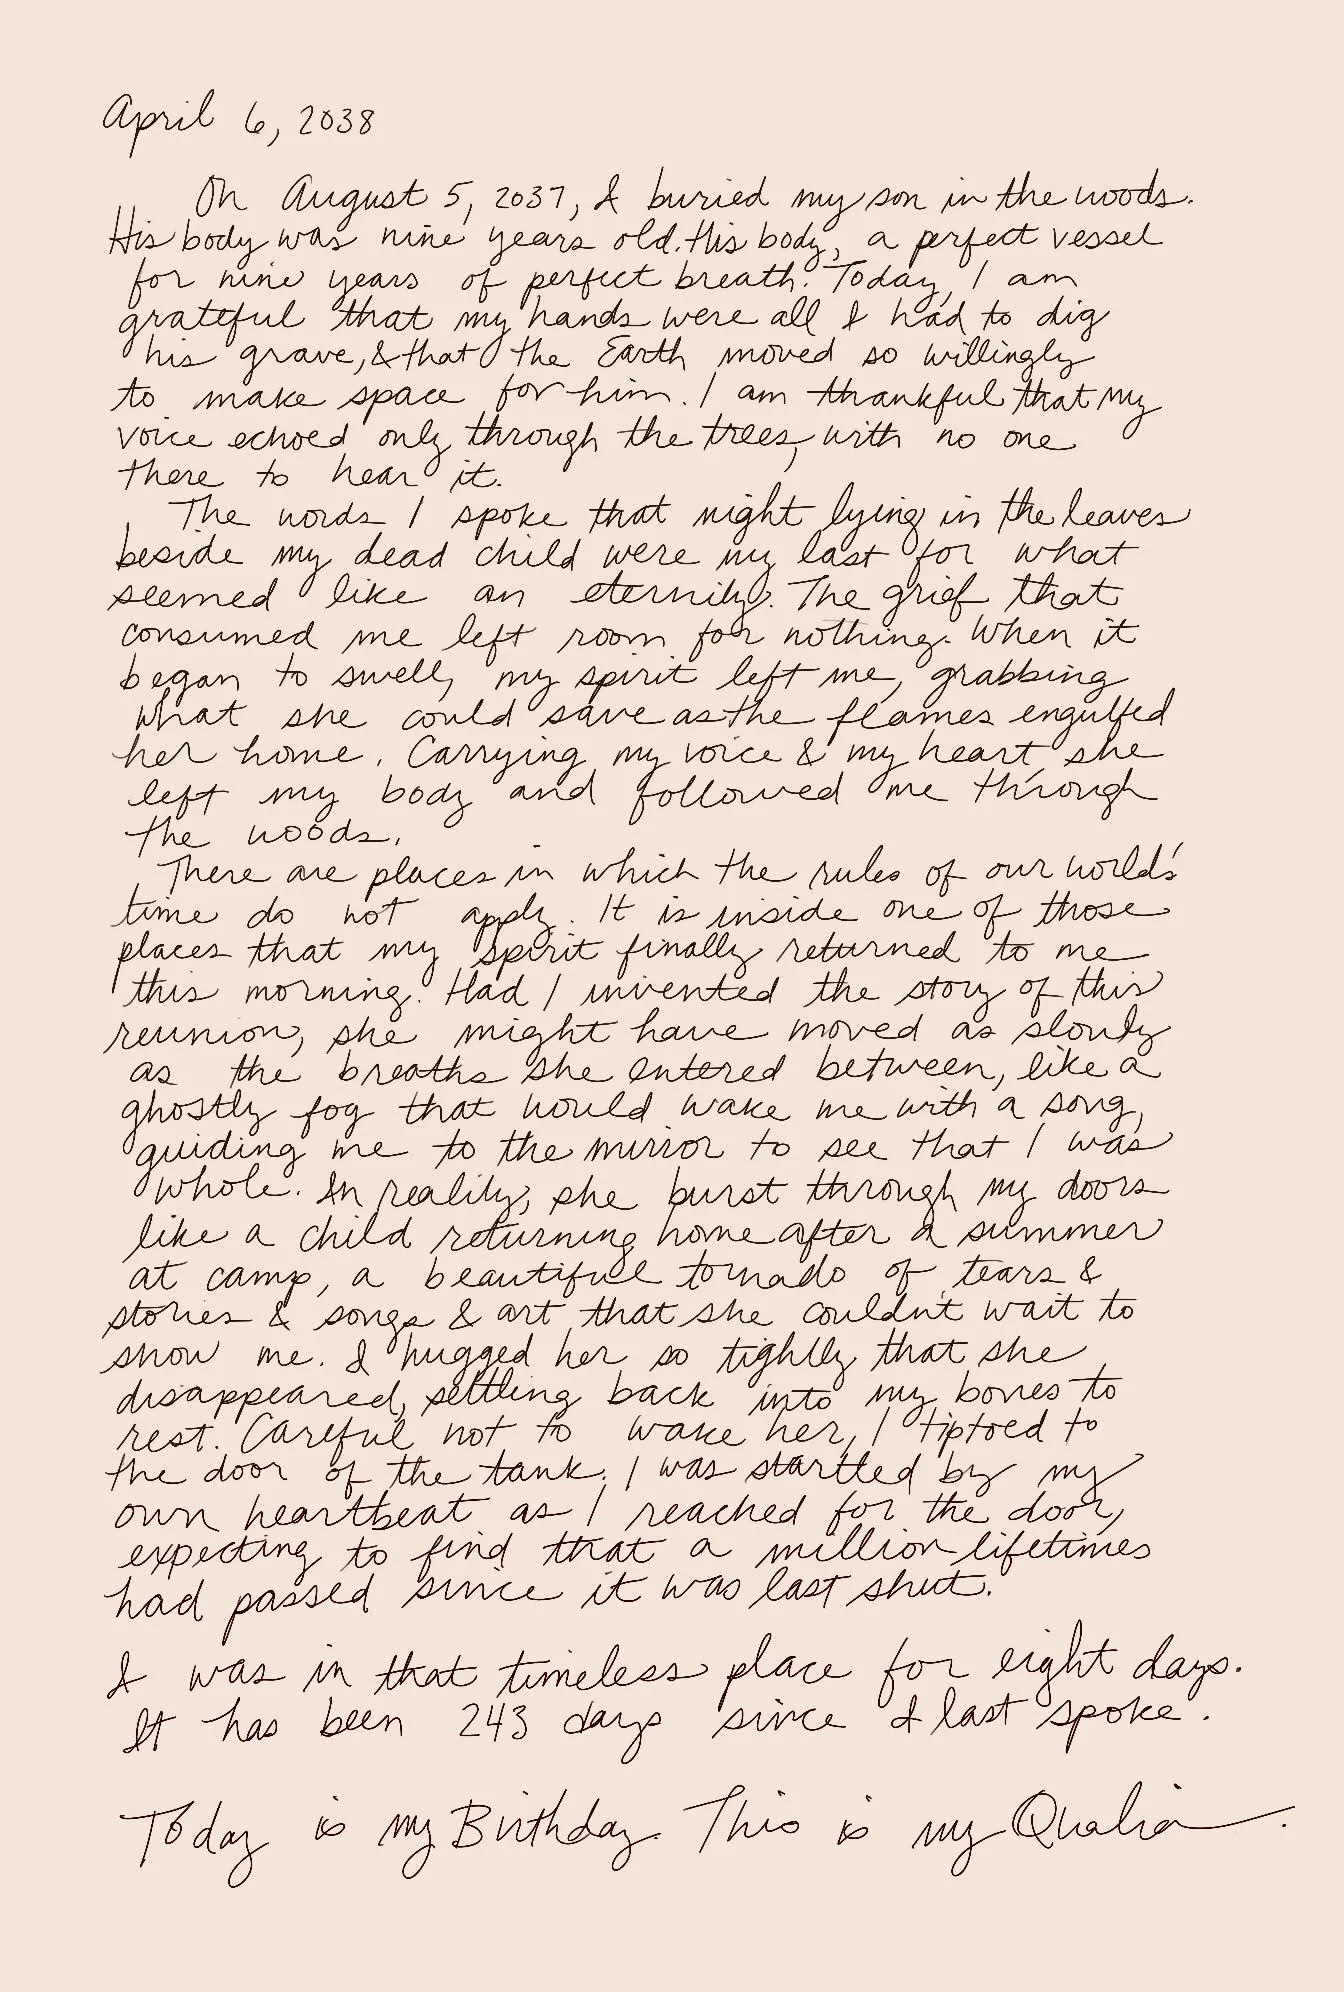 April 6, 2038
On August 5, 2037, I buried my son in the woods.
His body was nine years old. His body, a perfect vessel
for nine years of perfect breath. Today, I am
grateful that my hands were all I had to dig
his grave, & that the Earth moved so willingly
to make space for him. I am thankful that my
voice echoed only through the trees, with no one
there to hear it.
The words I spoke that night lying in the leaves
beside my dead child were my last for what
seemed like an eternity. The grief that
consumed me left room for nothing. When it
began to swell, my spirit left me, grabbing
what she could save as the flames engulfed
her home. Carrying my voice & my heart, she
left my body and followed me through
the woods.
There are places in which the rules of our world's
time do not apply. It is inside one of those
places that my spirit finally returned to me
this morning. Had I invented the story of this
reunion, she might have moved as slowly
as the breaths she entered between, like a
ghostly fog that would wake me with a song,
guiding me to the mirror to see that I was
whole. In reality, she burst through my doors
like a child returning home after a summer
at camp, a beautiful tornado of tears &
stories & songs & art that she couldn't wait to
show me. I hugged her so tightly that she
disappeared, settling back into my bones to
rest. Careful not to wake her, I tiptoed to
the door of the tank. I was startled by my
own heartbeat as I reached for the door,
expecting to find that a million lifetimes
had passed since it was last shut.
I was in that timeless place for eight days.
It has been 243 days since I last spoke.
Today is my Birthday. This is my Qualia.